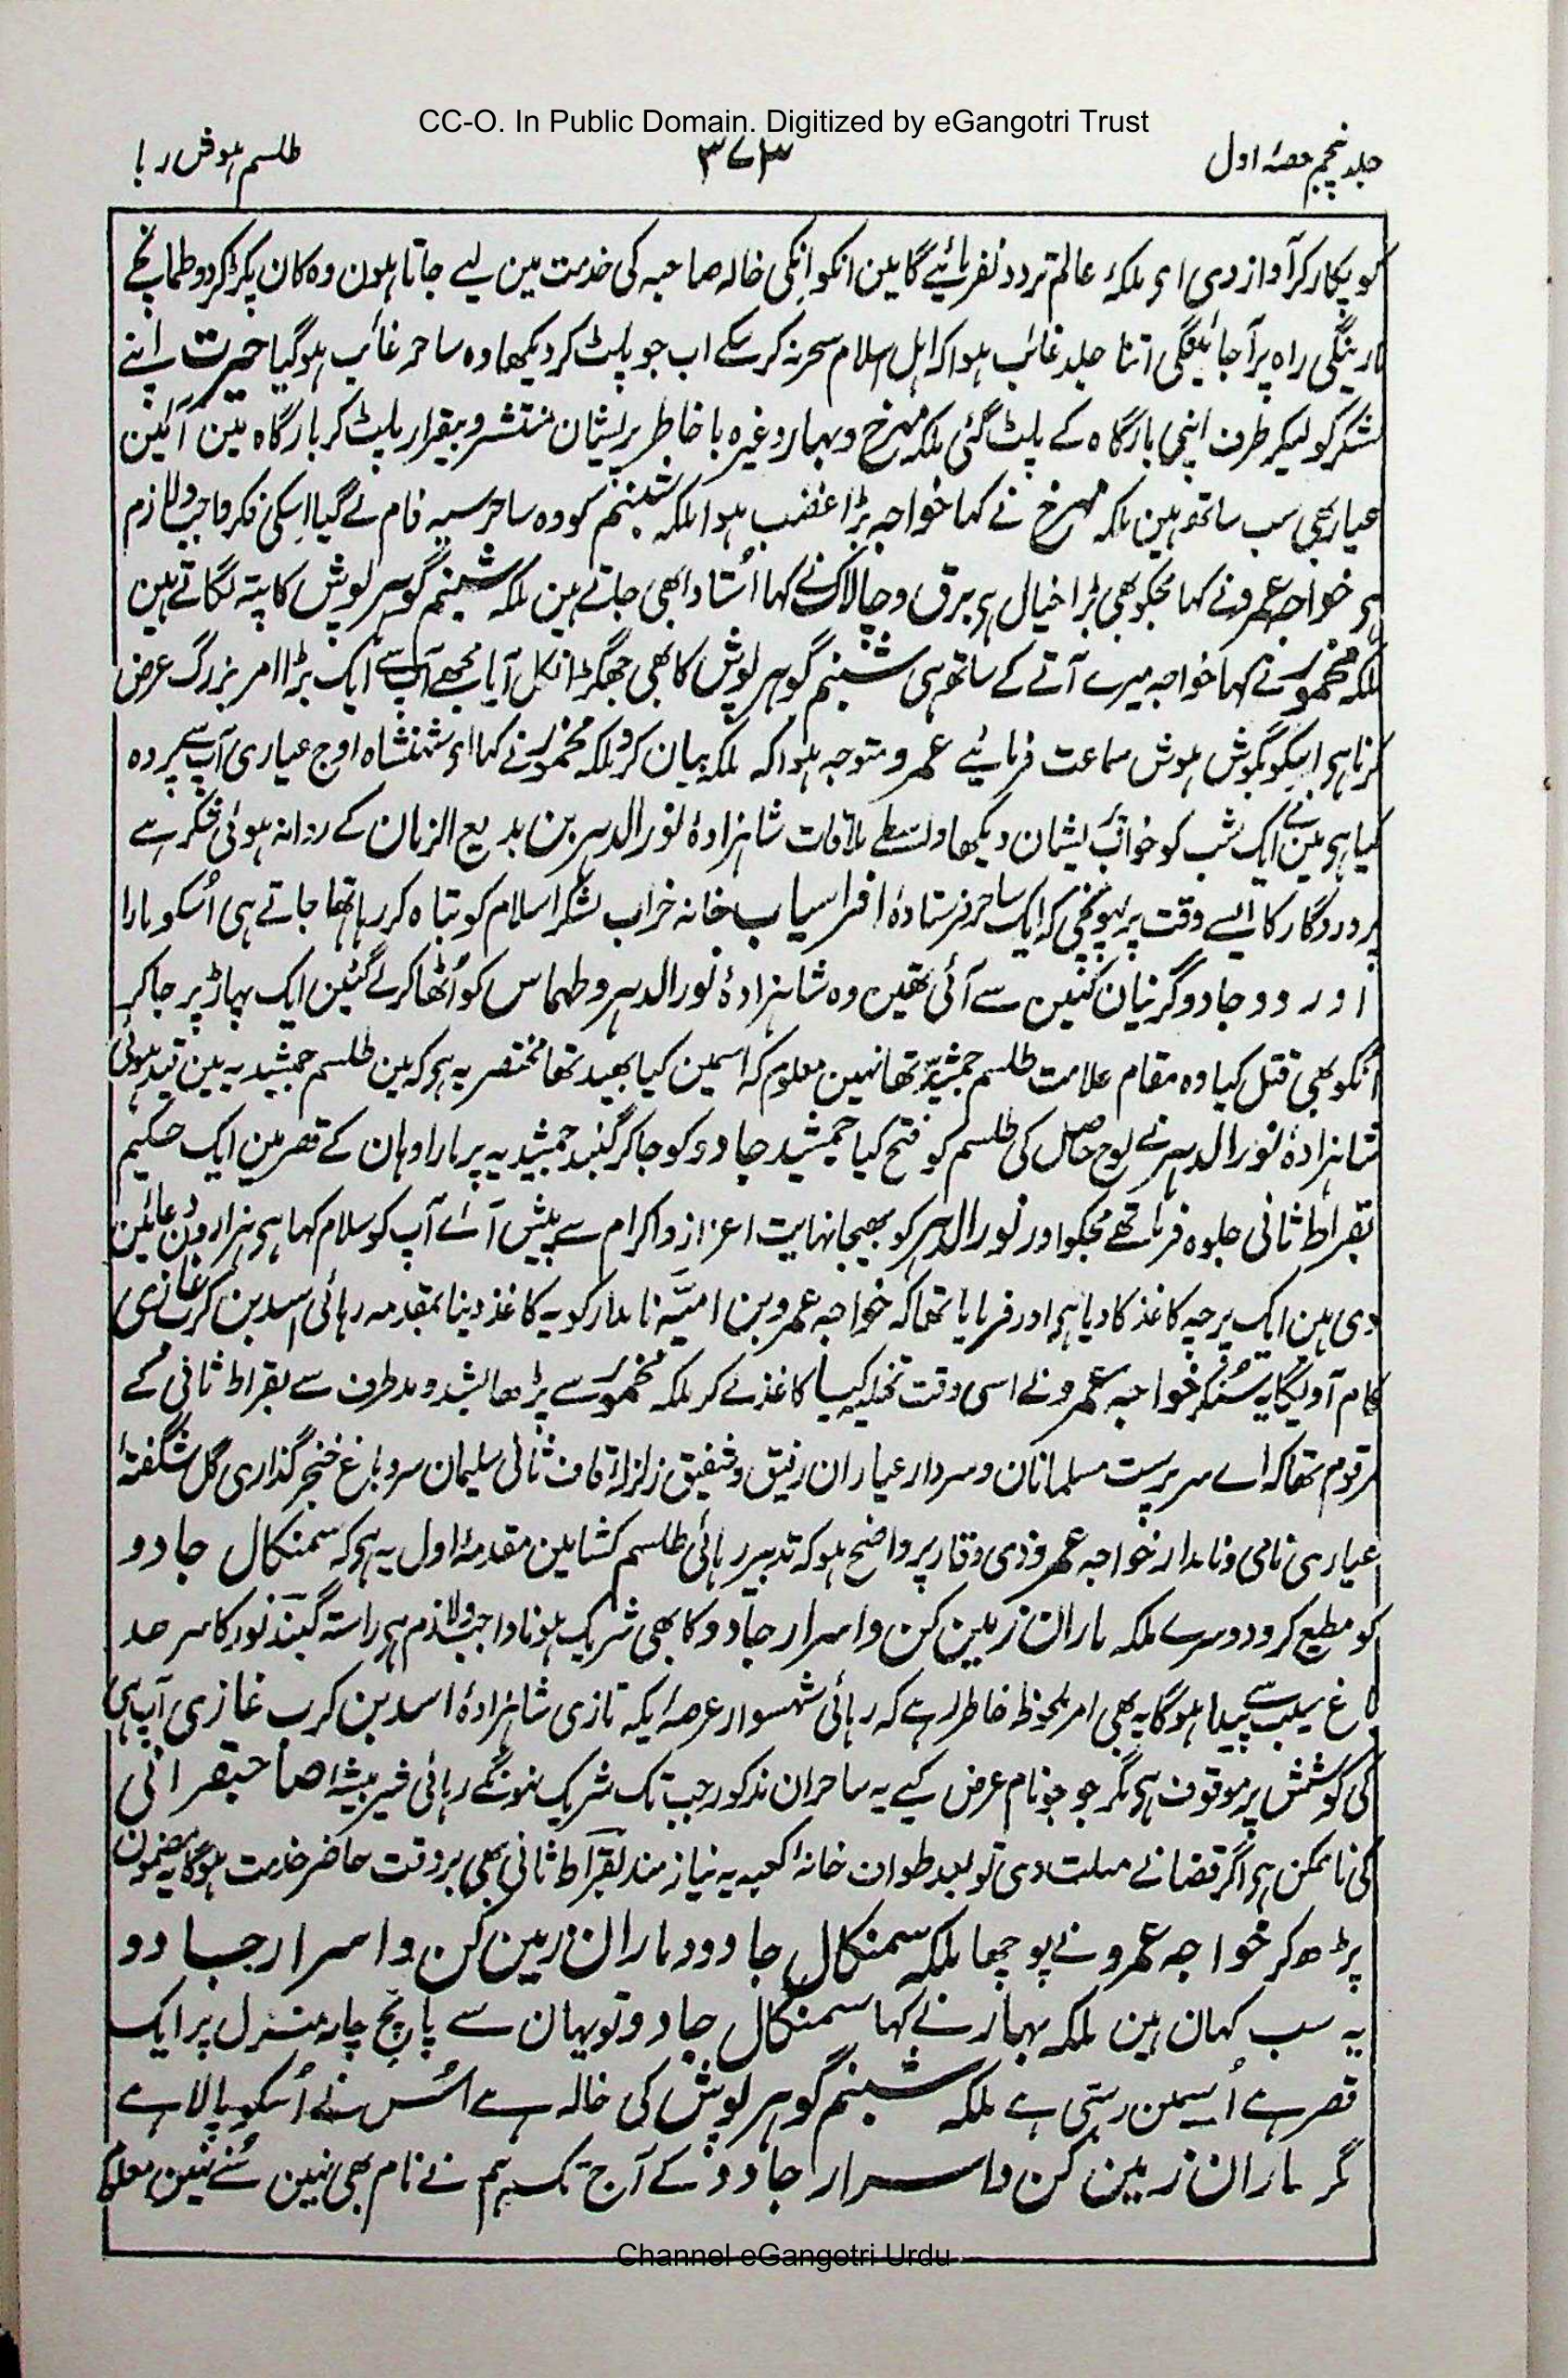 CC-O. In Public Domain. Digitized by eGangotri Trust
جلد پنجم حصۂ اول
۳۷۳
طلسم ہوش ربا
کو پکار کر آواز دی ای ملکۂ عالم تردد نفرمائیے گا مین انکو انکی خالہ صاحبہ کی خدمت مین لیے جاتا ہون وہ کان پکڑ کر دو طمانچے
مارینگی راہ پر آجائینگی اتنا جلد غائب ہوا کہ اہل اسلام سحر نہ کر سکے اب جو پلٹ کر دیکھا وہ ساحر غائب ہو گیا حیرت اپنے
لشکر کو لیکر طرف اپنی بارگاہ کے پلٹ گئی ملکہ مہرخ و بہار وغیرہ با خاطر پریشان منتشر و بیقرار پلٹ کر بارگاہ مین آئین
عیار بھی سب ساتھ ہین ملکہ مہرخ نے کہا خواجہ بڑا غضب ہوا ملکہ شبنم کو وہ ساحر سیہ فام لے گیا اسکی فکر واجب و لازم
ہی خواجہ عمرو نے کہا مجکو بھی بڑا خیال ہی برق و چالاک نے کہا اُستاد ابھی جاتے ہین ملکہ شبنم گوہر پوش کا پتہ لگاتے ہین
ملکہ مخمور نے کہا خواجہ میرے آتے کے ساتھ ہی شبنم گوہر پوش کا بھی جھگڑا نکل آیا مجھے آپ سے ایک بڑا امر بزرگ عرض
کرنا ہی اسکو بگوش ہوش سماعت فرمائیے عمرو متوجہ ہوا کہ ملکہ بیان کرو ملکہ مخمور نے کہا اے شہنشاہ اوج عیاری آپ سے پردہ
کیا ہی مین نے ایک شب کو خواب پریشان دیکھا واسطے ملاقات شاہزادۂ نور الدہر بن بدیع الزمان کے روانہ ہوئی شکر ہے
پروردگار کا ایسے وقت پر پہونچی کہ ایک ساحر فرستادۂ افراسیاب خانہ خراب لشکر اسلام کو تباہ کر رہا تھا جاتے ہی اُسکو مارا
اور دو جادوگرنیان کہین سے آئی تھین وہ شاہزادۂ نور الدہر و طہماس کو اُٹھا کر لے گئین ایک پہاڑ پر جا کر
اُنکو بھی قتل کیا وہ مقام علامت طلسم جمشیدیہ تھا نہین معلوم کہ اسمین کیا بھید تھا مختصر یہ ہی کہ مین طلسم جمشیدیہ مین قید ہوئی
شاہزادۂ نور الدہر نے لوح حاصل کی طلسم کو فتح کیا جمشید جادو کو جا کر گنبد جمشیدیہ پر مارا وہان کے قصر مین ایک حکیم
بقراط ثانی جلوہ فرما تھے مجکو اور نور الدہر کو بھیجا نہایت اعزاز و اکرام سے پیش آئے آپ کو سلام کہا ہی ہزارون دعائین
دی ہین ایک پرچہ کاغذ کا دیا ہی اور فرمایا تھا کہ خواجہ عمرو بن امیّہ نامدار کو یہ کاغذ دینا بمقدمہ رہائی اسد بن کرب غازی
کام آویگا یہ سُنکر خواجہ عمرو نے اسی وقت تخلیہ کیا کاغذ لے کر ملکہ مخمور سے پڑھا لشد و مد طرف سے بقراط ثانی کے
مرقوم تھا کہ اے سرپرست مسلمانان و سردار عیاران رفیق و شفیق زلزلۂ قاف ثانی سلیمان سرو باغ خنجر گذاری گل شگفتۂ
عیاری نامی و نامدار خواجہ عمرو ذی وقار پر واضح ہو کہ تدبیر رہائی طلسم کشا مین مقدمۂ اول یہ ہی کہ سمنکال جادو
کو مطیع کرو دوسرے ملکہ باران زمین کن و اسرار جادو کا بھی شریک ہونا واجب و لازم ہی راستہ گنبد نور کا سرحد
باغ سیب سے پیدا ہوگا یہ بھی امر ملحوظ خاطر رہے کہ رہائی شہسوار عرصۂ یکہ تازی شاہزادۂ اسد بن کرب غازی آپ ہی
کی کوشش پر موقوف ہی مگر جو جو نام عرض کیے یہ ساحران مذکور جب تک شریک نہونگے رہائی شیر بیشۂ صاحبقرانی
کی ناممکن ہی اگر قضا نے مہلت دی تو بعد طواف خانۂ کعبہ یہ نیازمند بقراط ثانی بھی بروقت حاضر خدمت ہوگا یہ مضمون
پڑھ کر خواجہ عمرو نے پوچھا ملکہ سمنکال جادو و باران زمین کن و اسرار جادو
یہ سب کہان ہین ملکہ بہار نے کہا سمنکال جادو تو یہان سے پانچ چار منزل پر ایک
قصر ہے اُسمین رہتی ہے ملکہ شبنم گوہر پوش کی خالہ ہے اُس نے اُسکو پالا ہے
مگر باران زمین کن و اسرار جادو کے آج تک ہم نے نام بھی نہین سُنے نہین معلوم
Channel eGangotri Urdu